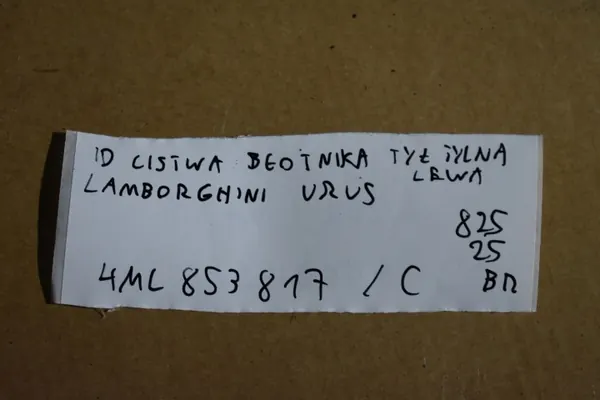 ID LISTWA BŁOTNIKA TYŁ TYLNA
LEWA
LAMBORGHINI URUS
825
25
4ML 853 817 / C
BR